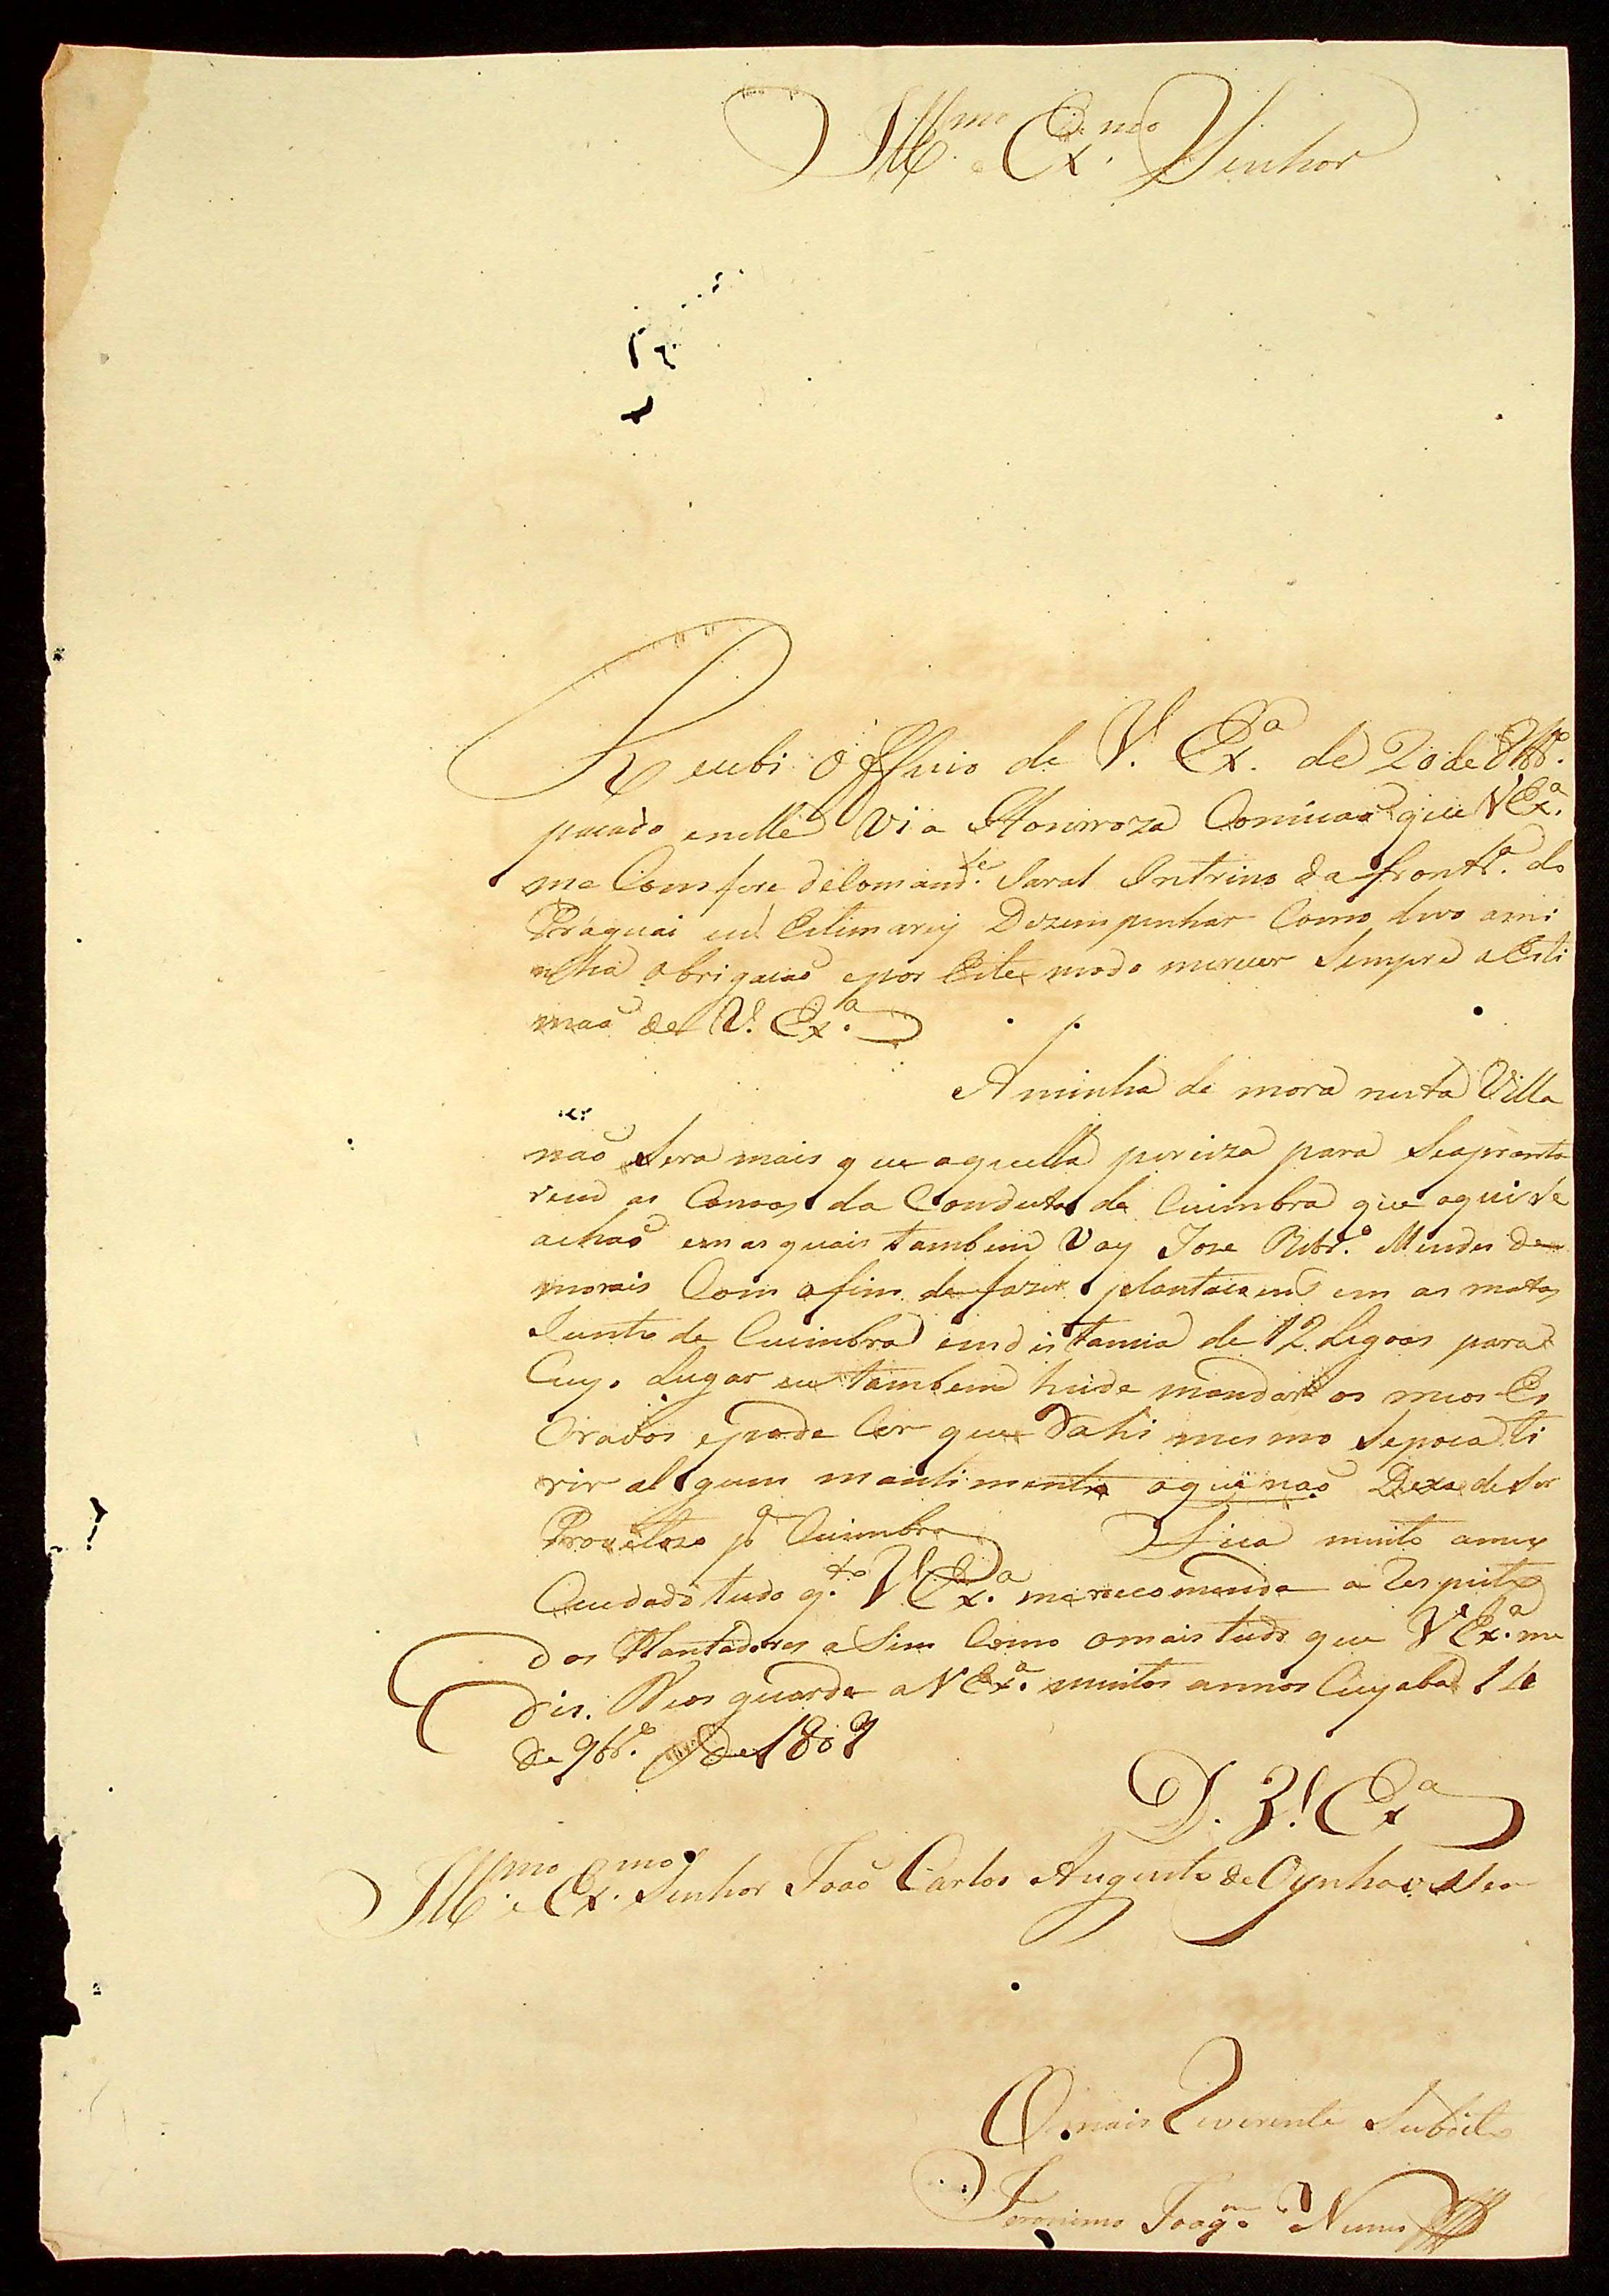 Ill.mo e Ex.mo Senhor
Recebi o Officio de V. Ex.a de 20 de 8br.o
pacado enelle Vi a Honrroza Comicaõ que V Ex.a
me Comfere de Comand.te Jaral Intrino da front.ra do
Paraguai eu Estimarey Dezempenhar Como devo ami
nha obrigacaõ epor Este modo merecer Sempre a Esti
macaõ de V. Ex.a
A minha de mora nesta Villa
naõ Sera mais que aquella perciza para Seapronta
rem as Canoas da Conduta de Cuimbra que aqui se
achaõ em as quais tambem Vay Joze Ribr.o Mendes de
morais Com o fim de fazer plantacens em as matas
Junto de Cuimbra em distancia de 12 Legoas para
Cujo Lugar eu tambem heide mandar os meos Es
Cravos epode Cer que dahi mesmo Sepoca ti
rir algum mantimento aque naõ Dexe de Ser
Proveitozo p.a Cuimbra Fica muito a meu
Cuidado tudo q.to V Ex.a me recomenda a Respeito
dos Plantadores a Sim Como omais tudo que V Ex.a me
dis. Deos guarde a V Ex.a muitos annos Cuyaba 14
de 9br.o de 1809
D. V. Ex.a
Ill.mo e Ex.mo Senhor Joaõ Carlos Augusto de Oynhausen
O mais Reverente Subdito
Jeronimo Joaq.m Nunes